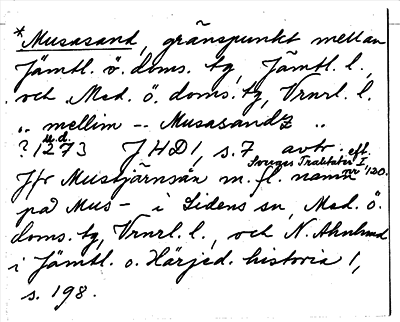 *Musasand, gränspunkt mellan
Jämtl. ö. doms. tg, Jämtl. l.,
och Msd. ö. doms. tg, Vrnrl. l.
„ mellim -- Musasandz „
? u.d. 1273 JHD 1, s. 7 avtr. eft.
Sveriges Traktater I, nr 120.
Jfr Mustjärnsån m. fl. namn
på Mus- i Lidens sn, Msd. ö.
doms. tg, Vrnrl. l., och N. Ahnlund
i Jämtl. o. Härjed. historia 1,
s. 198.